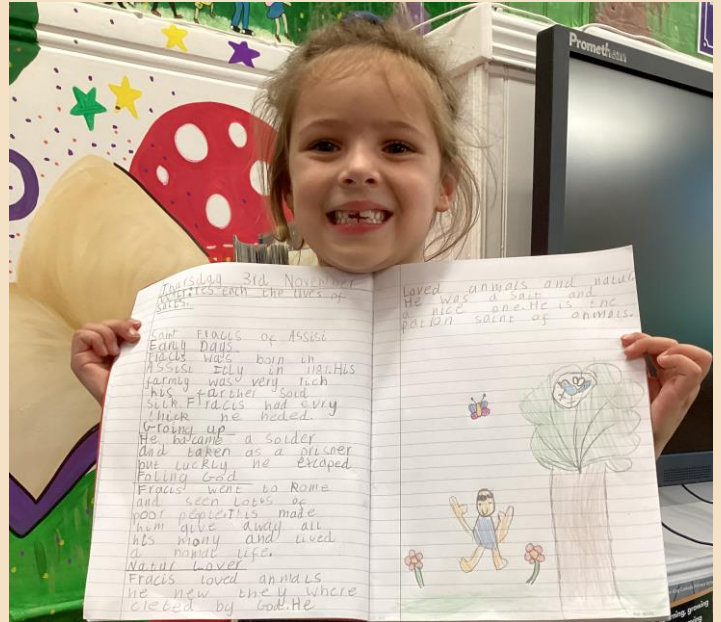 Promethean
Thursday 3rd November
each the lives of
saits.
Saint Fracis of Assisi
Early Days
Fracis was born in
Assisi Itly in 1181.His
family was very rich
his farther sold
silk.Fracis had evry
thick he neded.
Groing up
He became a solder
and taken as a prisner
but luckly he excaped
Foling God
Fracis went to Rome
and seen lotes of
poor peple.This made
him give away all
his mony and lived
a nomal life.
Natur Lover
Fracis loved anmals
he new they where
cleted by God.He
loved anmals and natur.
He was a sait and
a nice one.He is the
patron saint of anmals.
growing